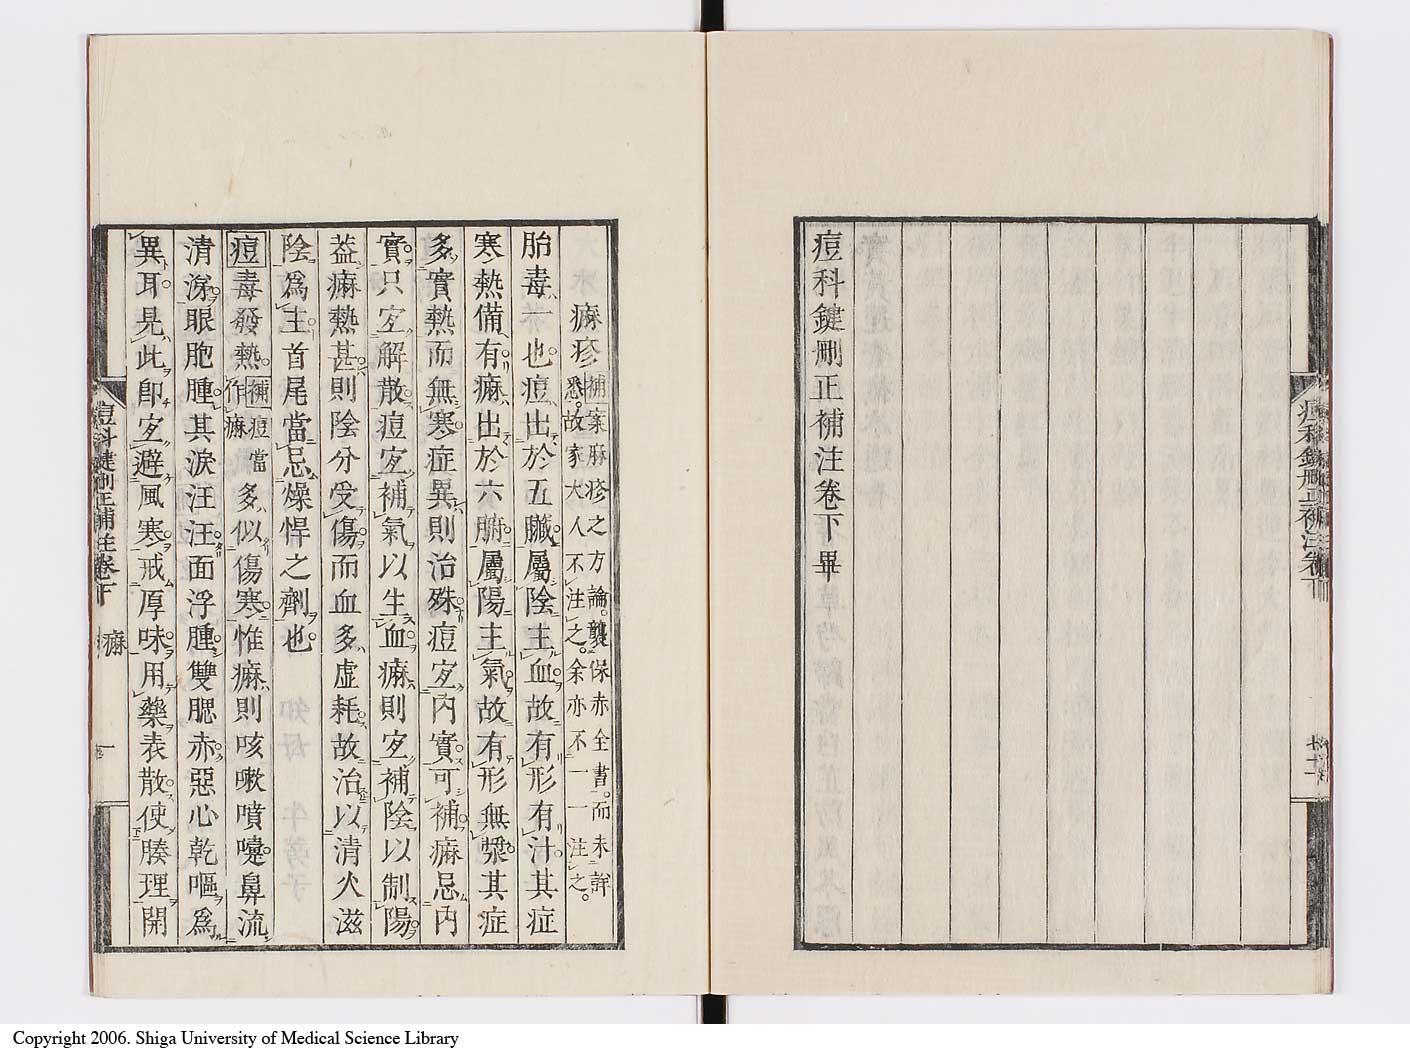 痘科鍵刪正補注卷下畢
痘科鍵刪正補注卷下
七十一
痲疹 補案麻疹之方論。襲保赤全書。而未詳
悉。故家大人不注之。余亦不一一注之。
胎毒一也痘出於五臟屬陰主血故有形有汁其症
寒熱備有痲出於六腑屬陽主氣故有形無漿其症
多實熱而無寒症異則治殊痘宐內實可補痲忌內
實只宐解散痘宐補氣以生血痲則宐補陰以制陽
葢痲熱甚則陰分受傷而血多虛耗故治以清火滋
陰爲主首尾當忌燥悍之劑也
痘毒發熱 補痘當作痲 多似傷寒惟痲則咳嗽噴嚏鼻流
清涕眼胞腫其淚汪汪面浮腫雙腮赤惡心乾嘔爲
異耳見此卽宐避風寒戒厚味用藥表散使腠理開
痘科鍵刪正補注卷下 痲 一
Copyright 2006. Shiga University of Medical Science Library